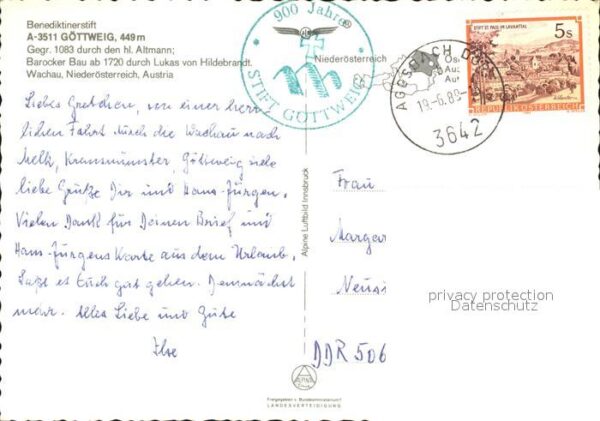 Benediktinerstift
A-3511 GÖTTWEIG, 449 m
Gegr. 1083 durch den hl. Altmann;
Barocker Bau ab 1720 durch Lukas von Hildebrandt.
Wachau, Niederösterreich, Austria
Niederösterreich
900 Jahre
STIFT GÖTTWEIG
AGGSBACH DORF
19.-6.89-
3642
STIFT ST. PAUL IM LAVANTTAL
5s
REPUBLIK ÖSTERREICH
Liebes Gretchen, von einer herr-
lichen Fahrt durch die Wachau nach
Melk, Kremsmünster, Göttweig viele
liebe Grüße Dir und Hans-Jürgen.
Vielen Dank für Deinen Brief und
Hans-Jürgens Karte aus dem Urlaub.
Laßt es Euch gut gehen. Demnächst
mehr. Alles Liebe und Gute
Ilse
Alpine Luftbild Innsbruck
Frau
Marger
Neusi
DDR 506
privacy protection
Datenschutz
Freigegeben v. Bundesministerium f.
LANDESVERTEIDIGUNG